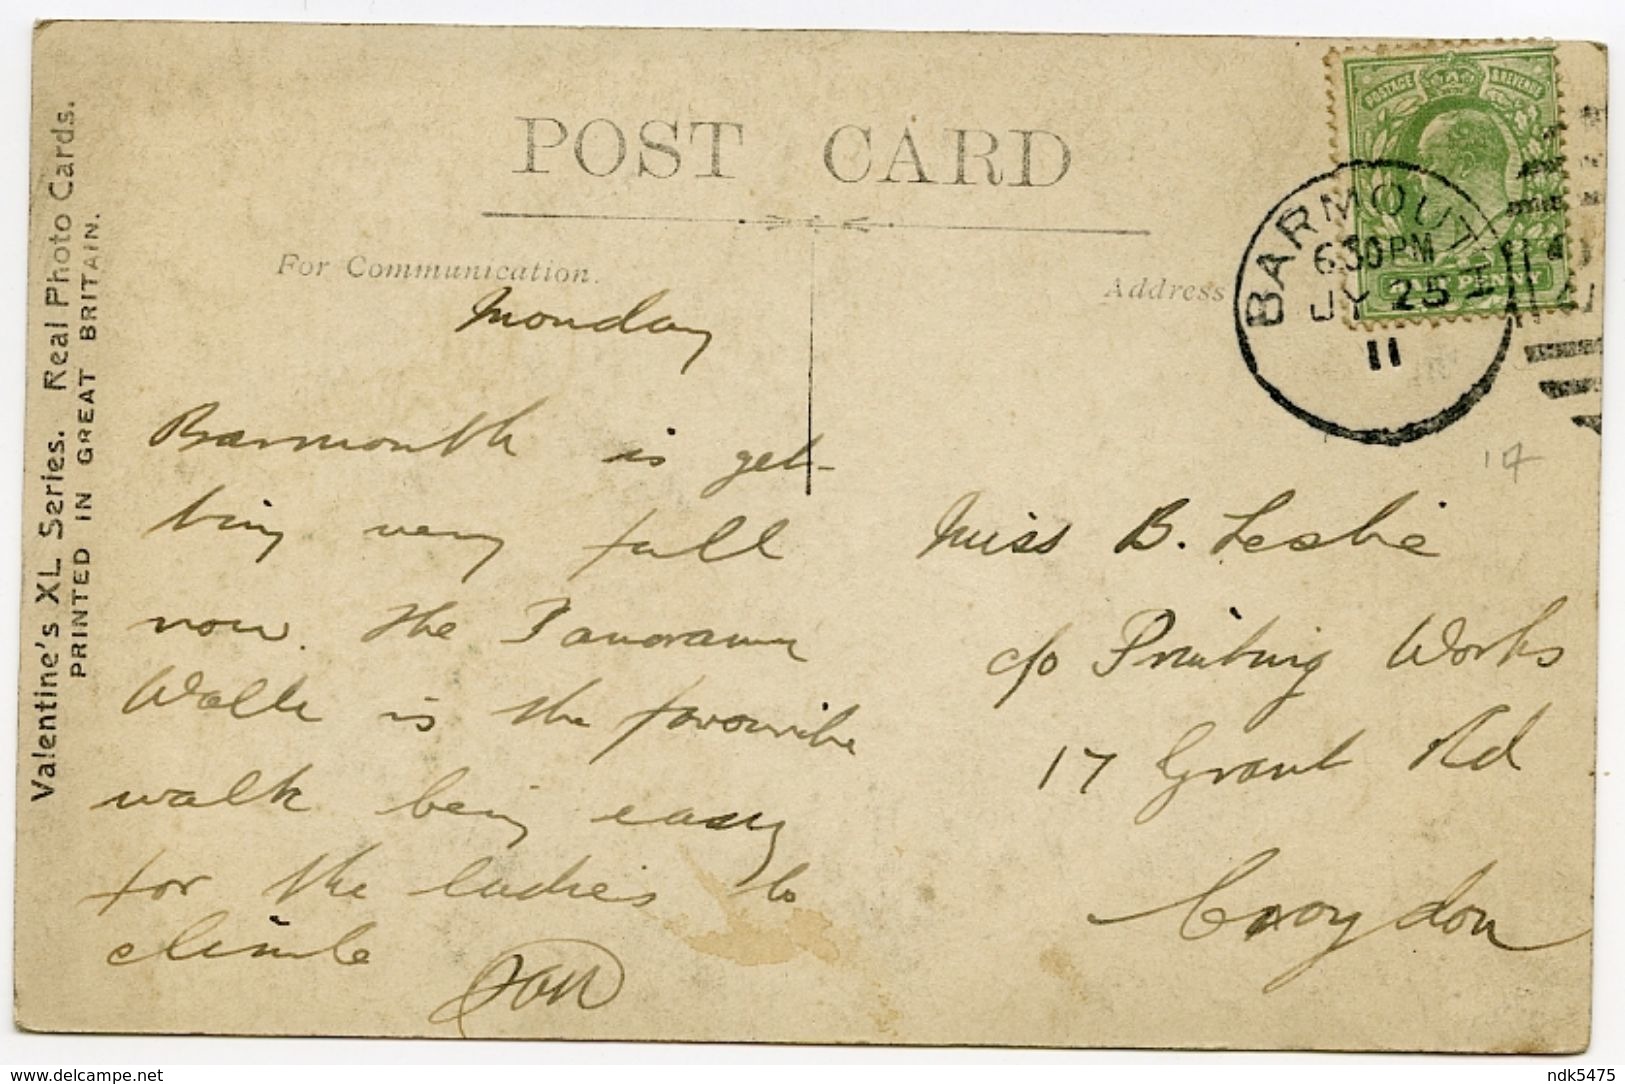 POST CARD
For Communication.
Address
Valentine's XL Series. Real Photo Cards.
PRINTED IN GREAT BRITAIN.
POSTAGE & REVENUE
BARMOUTH
6 30 PM
JY 25
11
17
Monday
Barmouth is get-
ting very full
now. The Panorama
Walk is the favourite
walk being easy
for the ladies to
climb
Miss B. Leslie
c/o Printing Works
17 Grant Rd
Croydon
www.delcampe.net
ndk5475